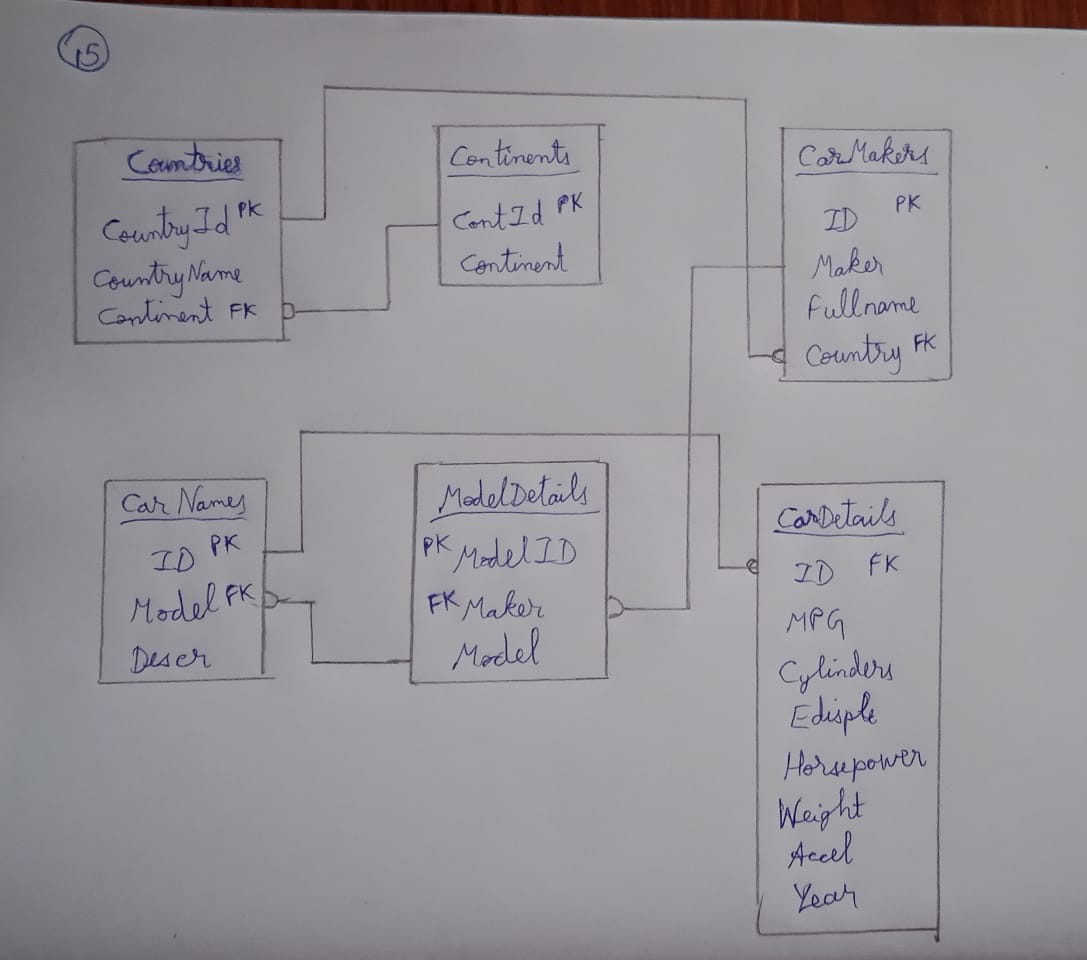 15
Countries
CountryId PK
CountryName
Continent FK
Continents
ContId PK
Continent
CarMakers
ID PK
Maker
Fullname
Country FK
Car Names
ID PK
Model FK
Descr
ModelDetails
PK ModelID
FK Maker
Model
CarDetails
ID FK
MPG
Cylinders
Edisple
Horsepower
Weight
Accel
Year